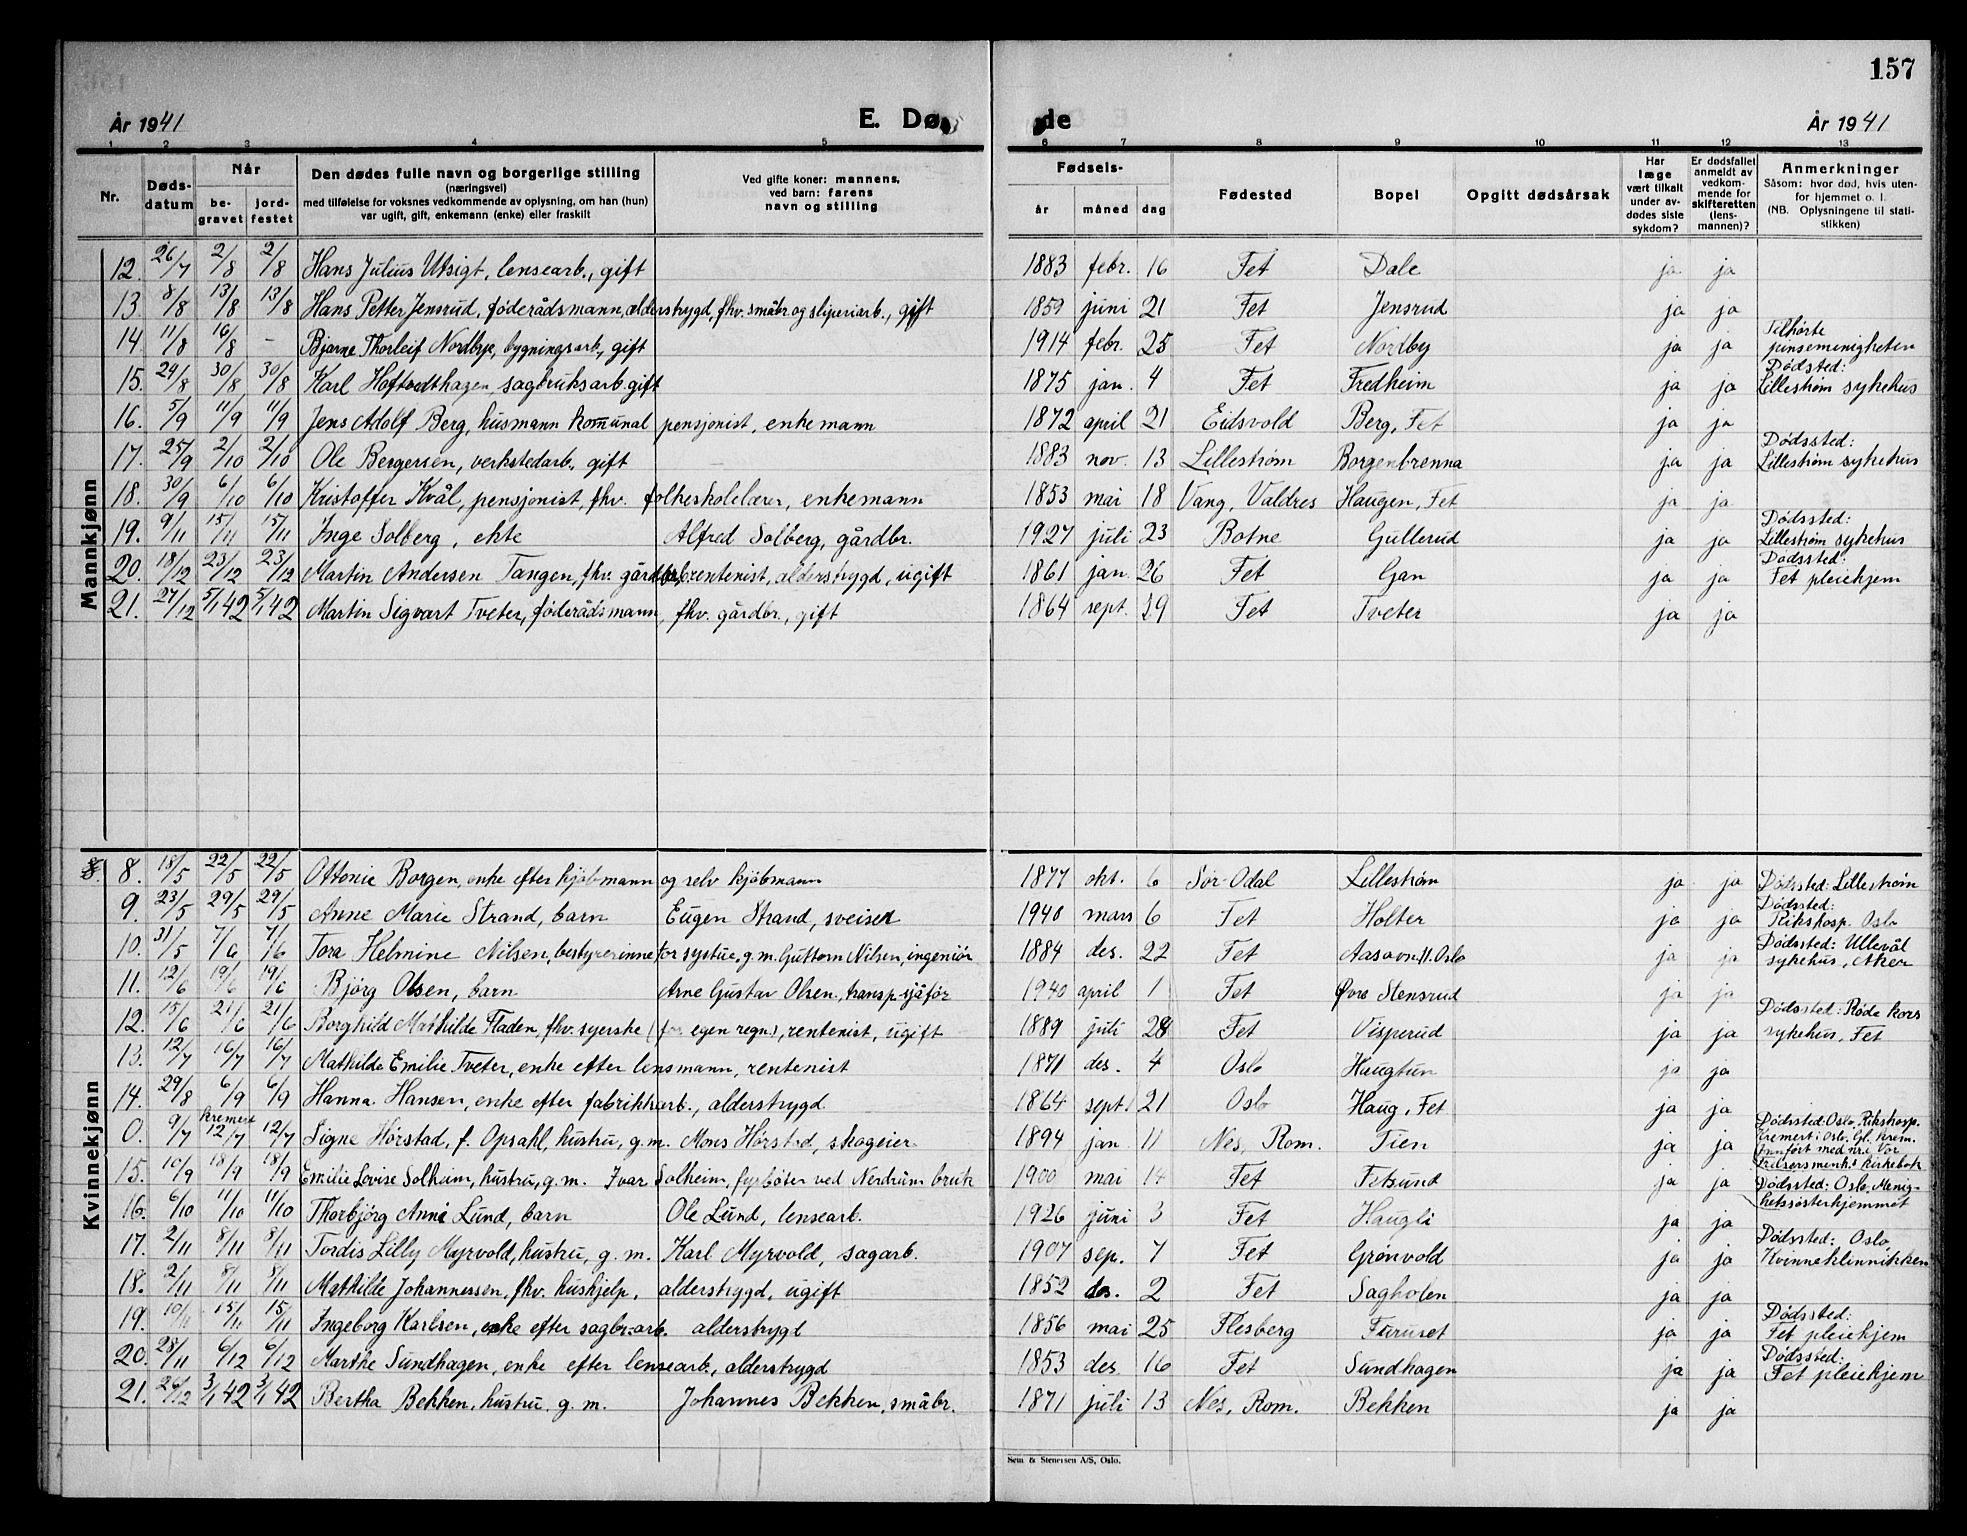 157
År 1941 E. Dø de År 1941
1 2 3 4 5 6 7 8 9 10 11 12 13
Nr. Døds-datum Når be-gravet jord-festet Den dødes fulle navn og borgerlige stilling (næringsvei) med tilføielse for voksnes vedkommende av oplysning, om han (hun) var ugift, gift, enkemann (enke) eller fraskilt Ved gifte koner: mannens, ved barn: farens navn og stilling Fødsels- år måned dag Fødested Bopel Opgitt dødsårsak Har læge vært tilkalt under av-dødes siste sykdom? Er dødsfallet anmeldt av vedkom-mende for skifteretten (lens-mannen)? Anmerkninger Såsom: hvor død, hvis uten-for hjemmet o. l. (NB. Oplysningene til stati-stikken)
Mannkjønn
12. 26/7 2/8 2/8 Hans Julius Utsigt, lensearb., gift 1883 febr. 16 Fet Dale ja ja
13. 8/8 13/8 13/8 Hans Petter Jensrud, føderådsmann, alderstrygd, fhv. småbr og sliperiarb., gift 1859 juni 21 Fet Jensrud ja ja
14. 11/8 16/8 - Bjarne Thorleif Nordbye, bygningsarb., gift 1914 febr. 25 Fet Nordby ja ja Tilhørte pinsemenigheten
15. 24/8 30/8 30/8 Karl Hoftvedthagen, sagbruksarb. gift 1875 jan. 4 Fet Fredheim ja ja Dødsted: Lillestrøm sykehus
16. 5/9 11/9 11/9 Jens Adolf Berg, husmann komunal pensjonist, enkemann 1872 april 21 Eidsvold Berg, Fet ja ja
17. 25/9 2/10 2/10 Ole Bergersen, verkstedarb., gift 1883 nov. 13 Lillestrøm Borgenbrenna ja ja Dødssted: Lillestrøm sykehus
18. 30/9 6/10 6/10 Kristoffer Kvål, pensjonist, fhv. folkeskolelærer, enkemann 1853 mai 18 Vang, Valdres Haugen, Fet ja ja
19. 9/11 15/11 15/11 Inge Solberg, ekte Alfred Solberg, gårdbr. 1927 juli 23 Botne Gullerud ja ja Dødssted: Lillestrøm sykehus
20. 18/12 23/12 23/12 Martin Andersen Tangen, fhv. gårdbr. rentenist, alderstrygd, ugift 1861 jan. 26 Fet Gan ja ja Dødssted: Fet pleiehjem
21. 27/12 5/1 42 5/1 42 Martin Sigvart Tveter, føderådsmann, fhv. gårdbr., gift 1864 sept. 29 Fet Tveter ja ja
Kvinnekjønn
8. 8. 18/5 22/5 22/5 Ottonie Borgen, enke efter kjøbmann og selv kjøbmann 1877 okt. 6 Sør-Odal Lillestrøm ja ja Dødssted: Lillestrøm
9. 23/5 29/5 29/5 Anne Marie Strand, barn Eugen Strand, sveiser 1940 mars 6 Fet Holter ja ja Dødssted: Rikshosp. Oslo
10. 31/5 7/6 7/6 Tora Helmine Nilsen, bestyrerinne for systue, g. m. Guttorm Nilsen, ingeniør 1884 des. 22 Fet Oslo ja ja Dødssted: Ullevål sykehus, Aker
11. 12/6 19/6 19/6 Bjørg Olsen, barn Arne Gustav Olsen, transp. sjåfør 1940 april 1 Fet Øvre Stensrud ja ja
12. 15/6 21/6 21/6 Borghild Mathilde Fladen, fhv. syerske (for egen regn.), rentenist, ugift 1889 juli 28 Fet Visperud ja ja Dødssted: Røde kors sykehus, Fet
13. 12/7 16/7 16/7 Mathilde Emilie Tveter, enke efter lensmann, rentenist 1871 des. 4 Oslo Haugtun ja ja
14. 29/8 6/9 6/9 Hanna Hansen, enke efter fabrikkarb., alderstrygd 1864 sept. 21 Oslo Haug, Fet ja ja
0. 9/7 kremert 12/7 12/7 Signe Hørstad, f. Opsahl, hustru, g. m. Mons Hørstad, skogeier 1894 jan 11 Nes, Rom. Tien ja ja Dødssted: Oslo, Rikshosp. Kremert i Oslo, Gl. krem. Innført med nr. i Vor Frelsers menh.s kirkebok
15. 10/9 18/9 18/9 Emilie Lovise Solheim, hustru, g. m. Ivar Solheim, fyrbøter ved Nerdrum bruk 1900 mai 14 Fet Fetsund ja ja Dødssted: Oslo, Menig-hetssøsterhjemmet
16. 6/10 11/10 11/10 Thorbjørg Anne Lund, barn Ole Lund, lensearb. 1926 juni 3 Fet Haugli ja ja
17. 2/11 8/11 8/11 Tordis Lilly Myrvold, hustru, g. m. Karl Myrvold, sagarb. 1907 sep. 7 Fet Grønvold ja ja Dødssted: Oslo, Kvinneklinnikken
18. 2/11 8/11 8/11 Mathilde Johannessen, fhv. hushjelp, alderstrygd, ugift 1852 des. 2 Fet Sagholen ja ja
19. 10/11 15/11 15/11 Ingeborg Karlsen, enke efter sagbr.arb. alderstrygd 1856 mai 25 Flesberg Furuset ja ja Dødssted: Fet pleiehjem
20. 28/11 6/12 6/12 Marthe Sundhagen, enke efter lensearb., alderstrygd 1853 des. 16 Fet Sundhagen ja ja Dødssted: Fet pleiehjem
21. 26/12 3/1 42 3/1 42 Bertha Bekken, hustru, g. m. Johannes Bekken, småbr. 1871 juli 13 Nes, Rom. Bekken ja ja
Sem & Stenersen A/S, Oslo.